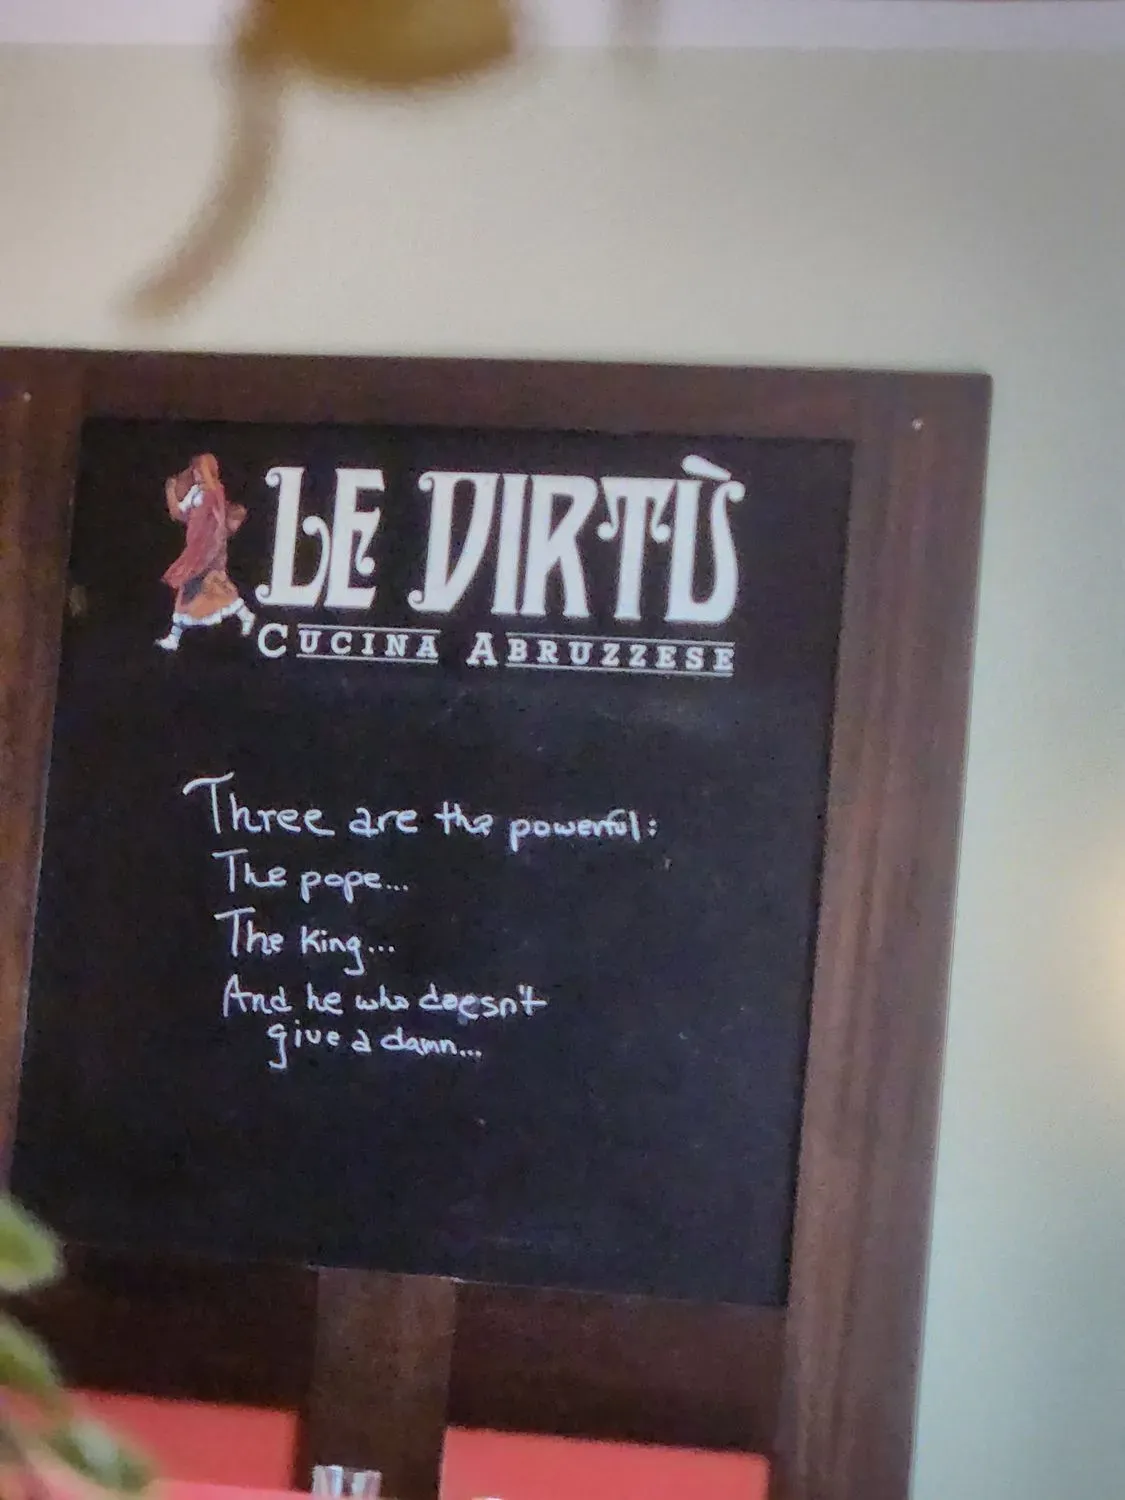 LE VIRTÙ
CUCINA ABRUZZESE
Three are the powerful:
The pope...
The King...
And he who doesn't
give a damn...